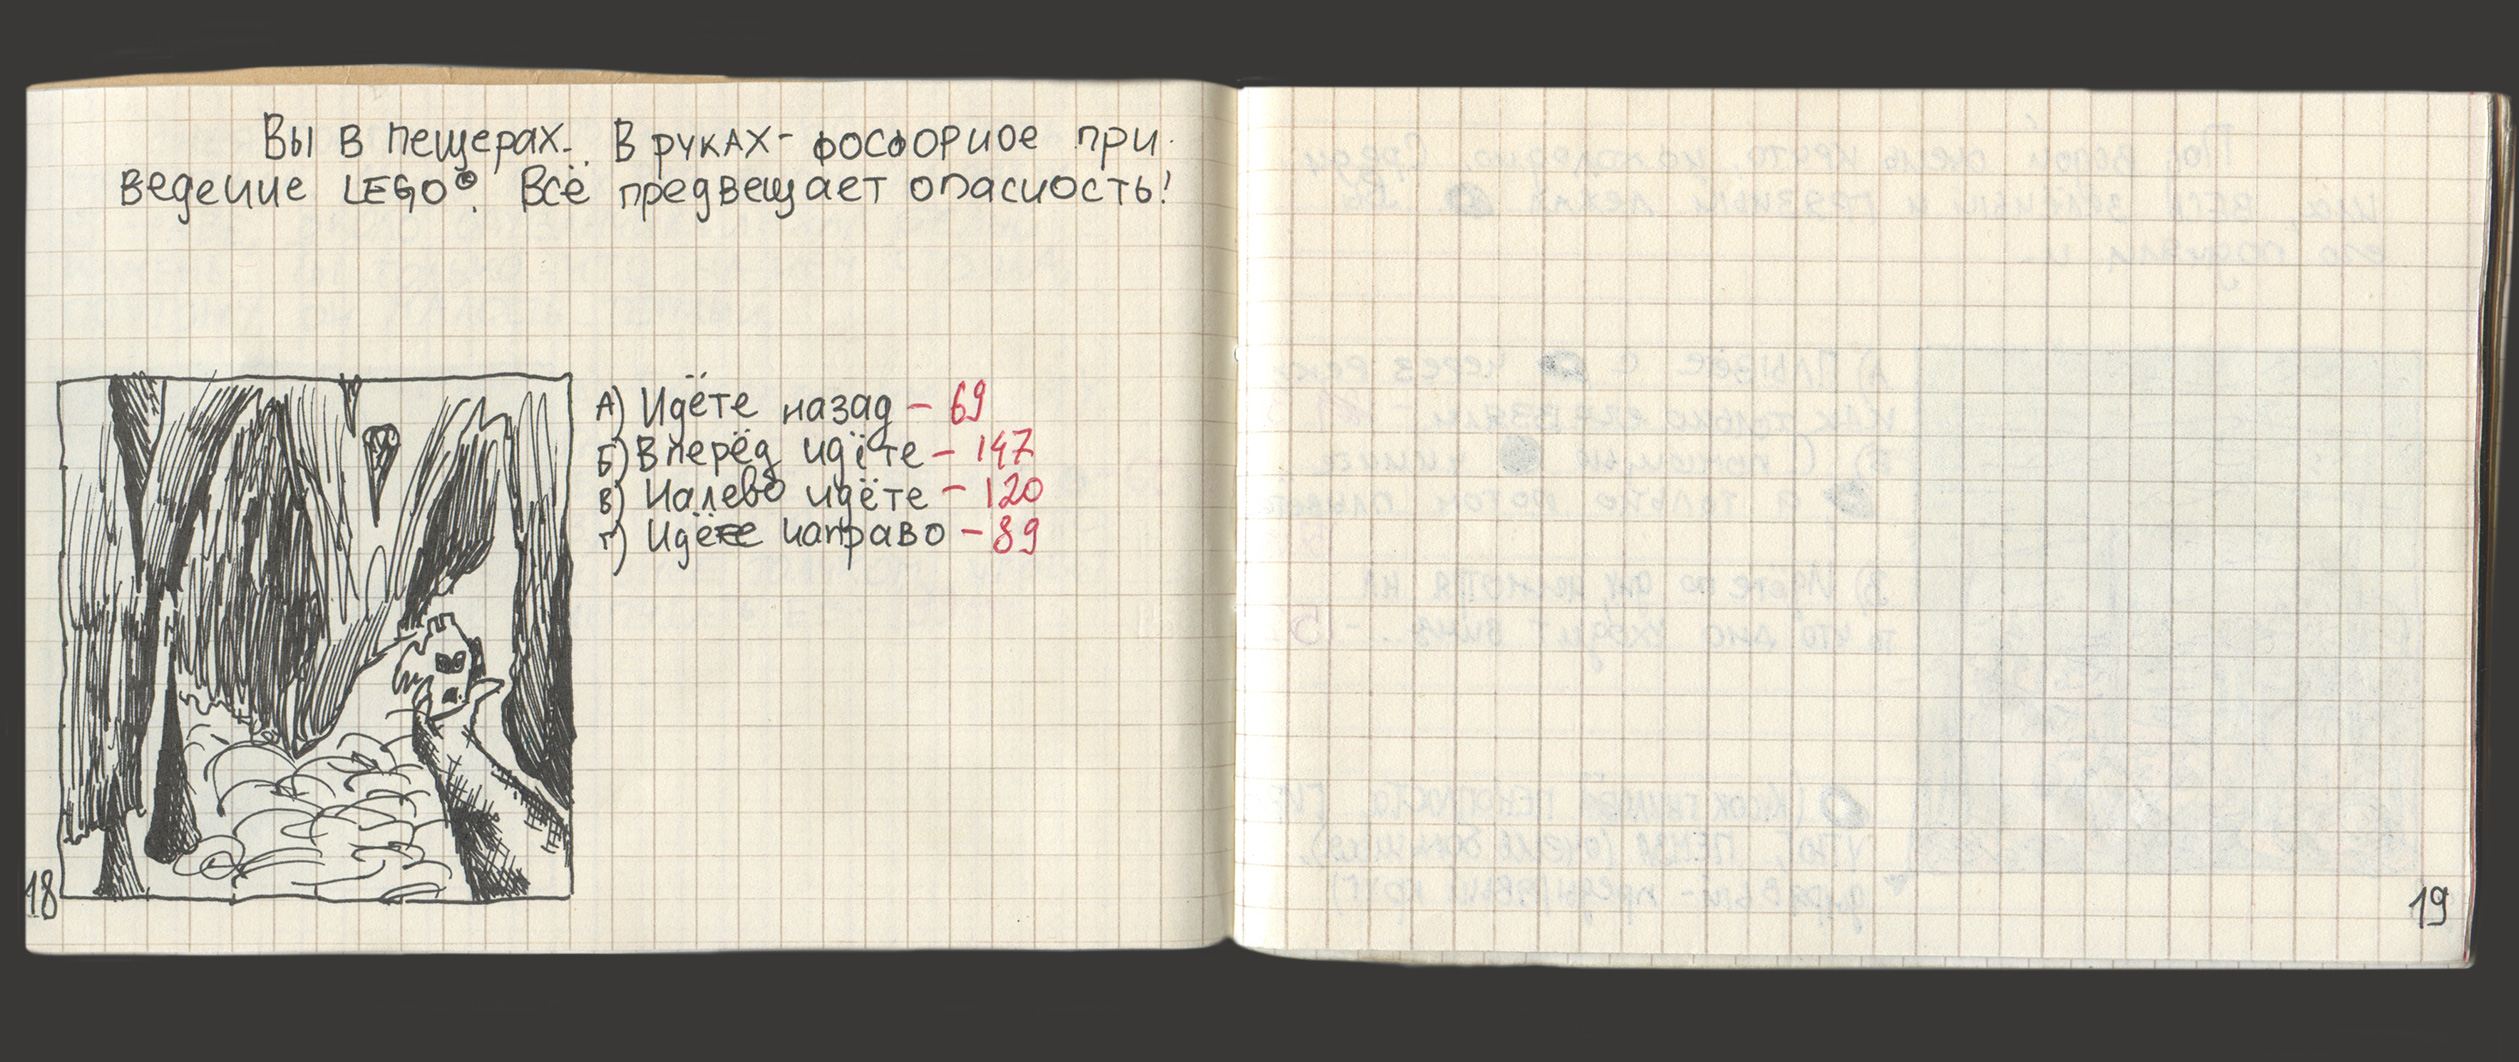 Вы в пещерах. В руках - фосфорное при
ведение LEGO®. Всё предвещает опасность!
А) Идёте назад - 69
Б) Вперёд идёте - 147
В) Налево идёте - 120
Г) Идёте направо - 89
18
19